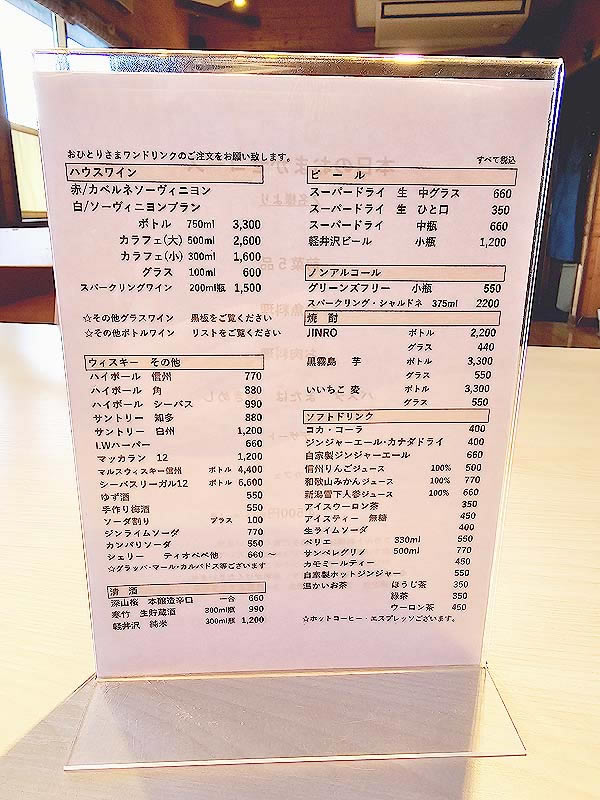 おひとりさまワンドリンクのご注文をお願い致します。
すべて税込
ハウスワイン
赤/カベルネソーヴィニヨン
白/ソーヴィニヨンブラン
ボトル 750ml 3,300
カラフェ(大) 500ml 2,600
カラフェ(小) 300ml 1,600
グラス 100ml 600
スパークリングワイン 200ml瓶 1,500
☆その他グラスワイン 黒板をご覧ください
☆その他ボトルワイン リストをご覧ください
ウィスキー その他
ハイボール 信州 770
ハイボール 角 880
ハイボール シーバス 990
サントリー 知多 880
サントリー 白州 1,200
I.Wハーパー 660
マッカラン 12 1,200
マルスウィスキー信州 ボトル 4,400
シーバスリーガル12 ボトル 6,600
ゆず酒 550
手作り梅酒 550
ソーダ割り プラス 100
ジンライムソーダ 770
カンパリソーダ 550
シェリー ティオペペ他 660 ～
☆グラッパ・マール・カルバドス等ございます
清 酒
深山桜 本醸造辛口 一合 660
寒竹 生貯蔵酒 300ml瓶 990
軽井沢 純米 300ml瓶 1,200
ビール
スーパードライ 生 中グラス 660
スーパードライ 生 ひと口 350
スーパードライ 中瓶 660
軽井沢ビール 小瓶 1,200
ノンアルコール
グリーンズフリー 小瓶 550
スパークリング・シャルドネ 375ml 2200
焼 酎
JINRO ボトル 2,200
グラス 440
黒霧島 芋 ボトル 3,300
グラス 550
いいちこ 麦 ボトル 3,300
グラス 550
ソフトドリンク
コカ・コーラ 400
ジンジャーエール・カナダドライ 400
自家製ジンジャーエール 660
信州りんごジュース 100% 500
和歌山みかんジュース 100% 770
新潟雪下人参ジュース 100% 660
アイスウーロン茶 350
アイスティー 無糖 450
生ライムソーダ 400
ペリエ 330ml 550
サンペレグリノ 500ml 770
カモミールティー 450
自家製ホットジンジャー 550
温かいお茶 ほうじ茶 350
緑茶 350
ウーロン茶 450
☆ホットコーヒー・エスプレッソございます。